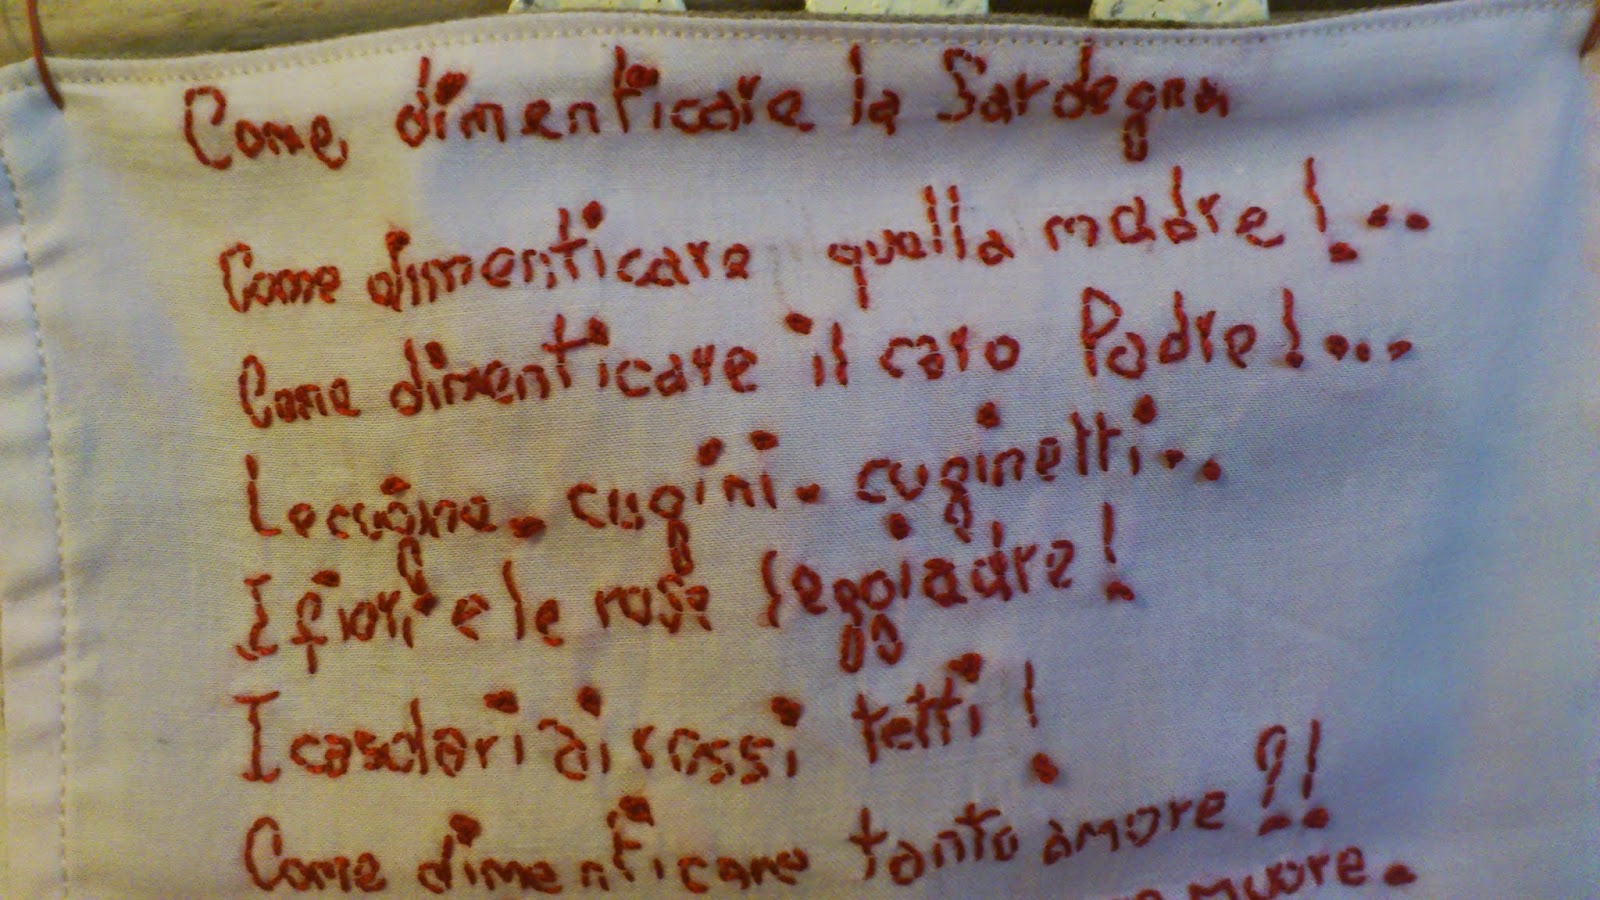 Come dimenticare la Sardegna
Come dimenticare quella madre!...
Come dimenticare il caro Padre!....
Le cugine. cugini. cuginetti...
I fiori e le rose leggiadre!
I casolari di rossi tetti!
Come dimenticare tanto amore?!
muore.